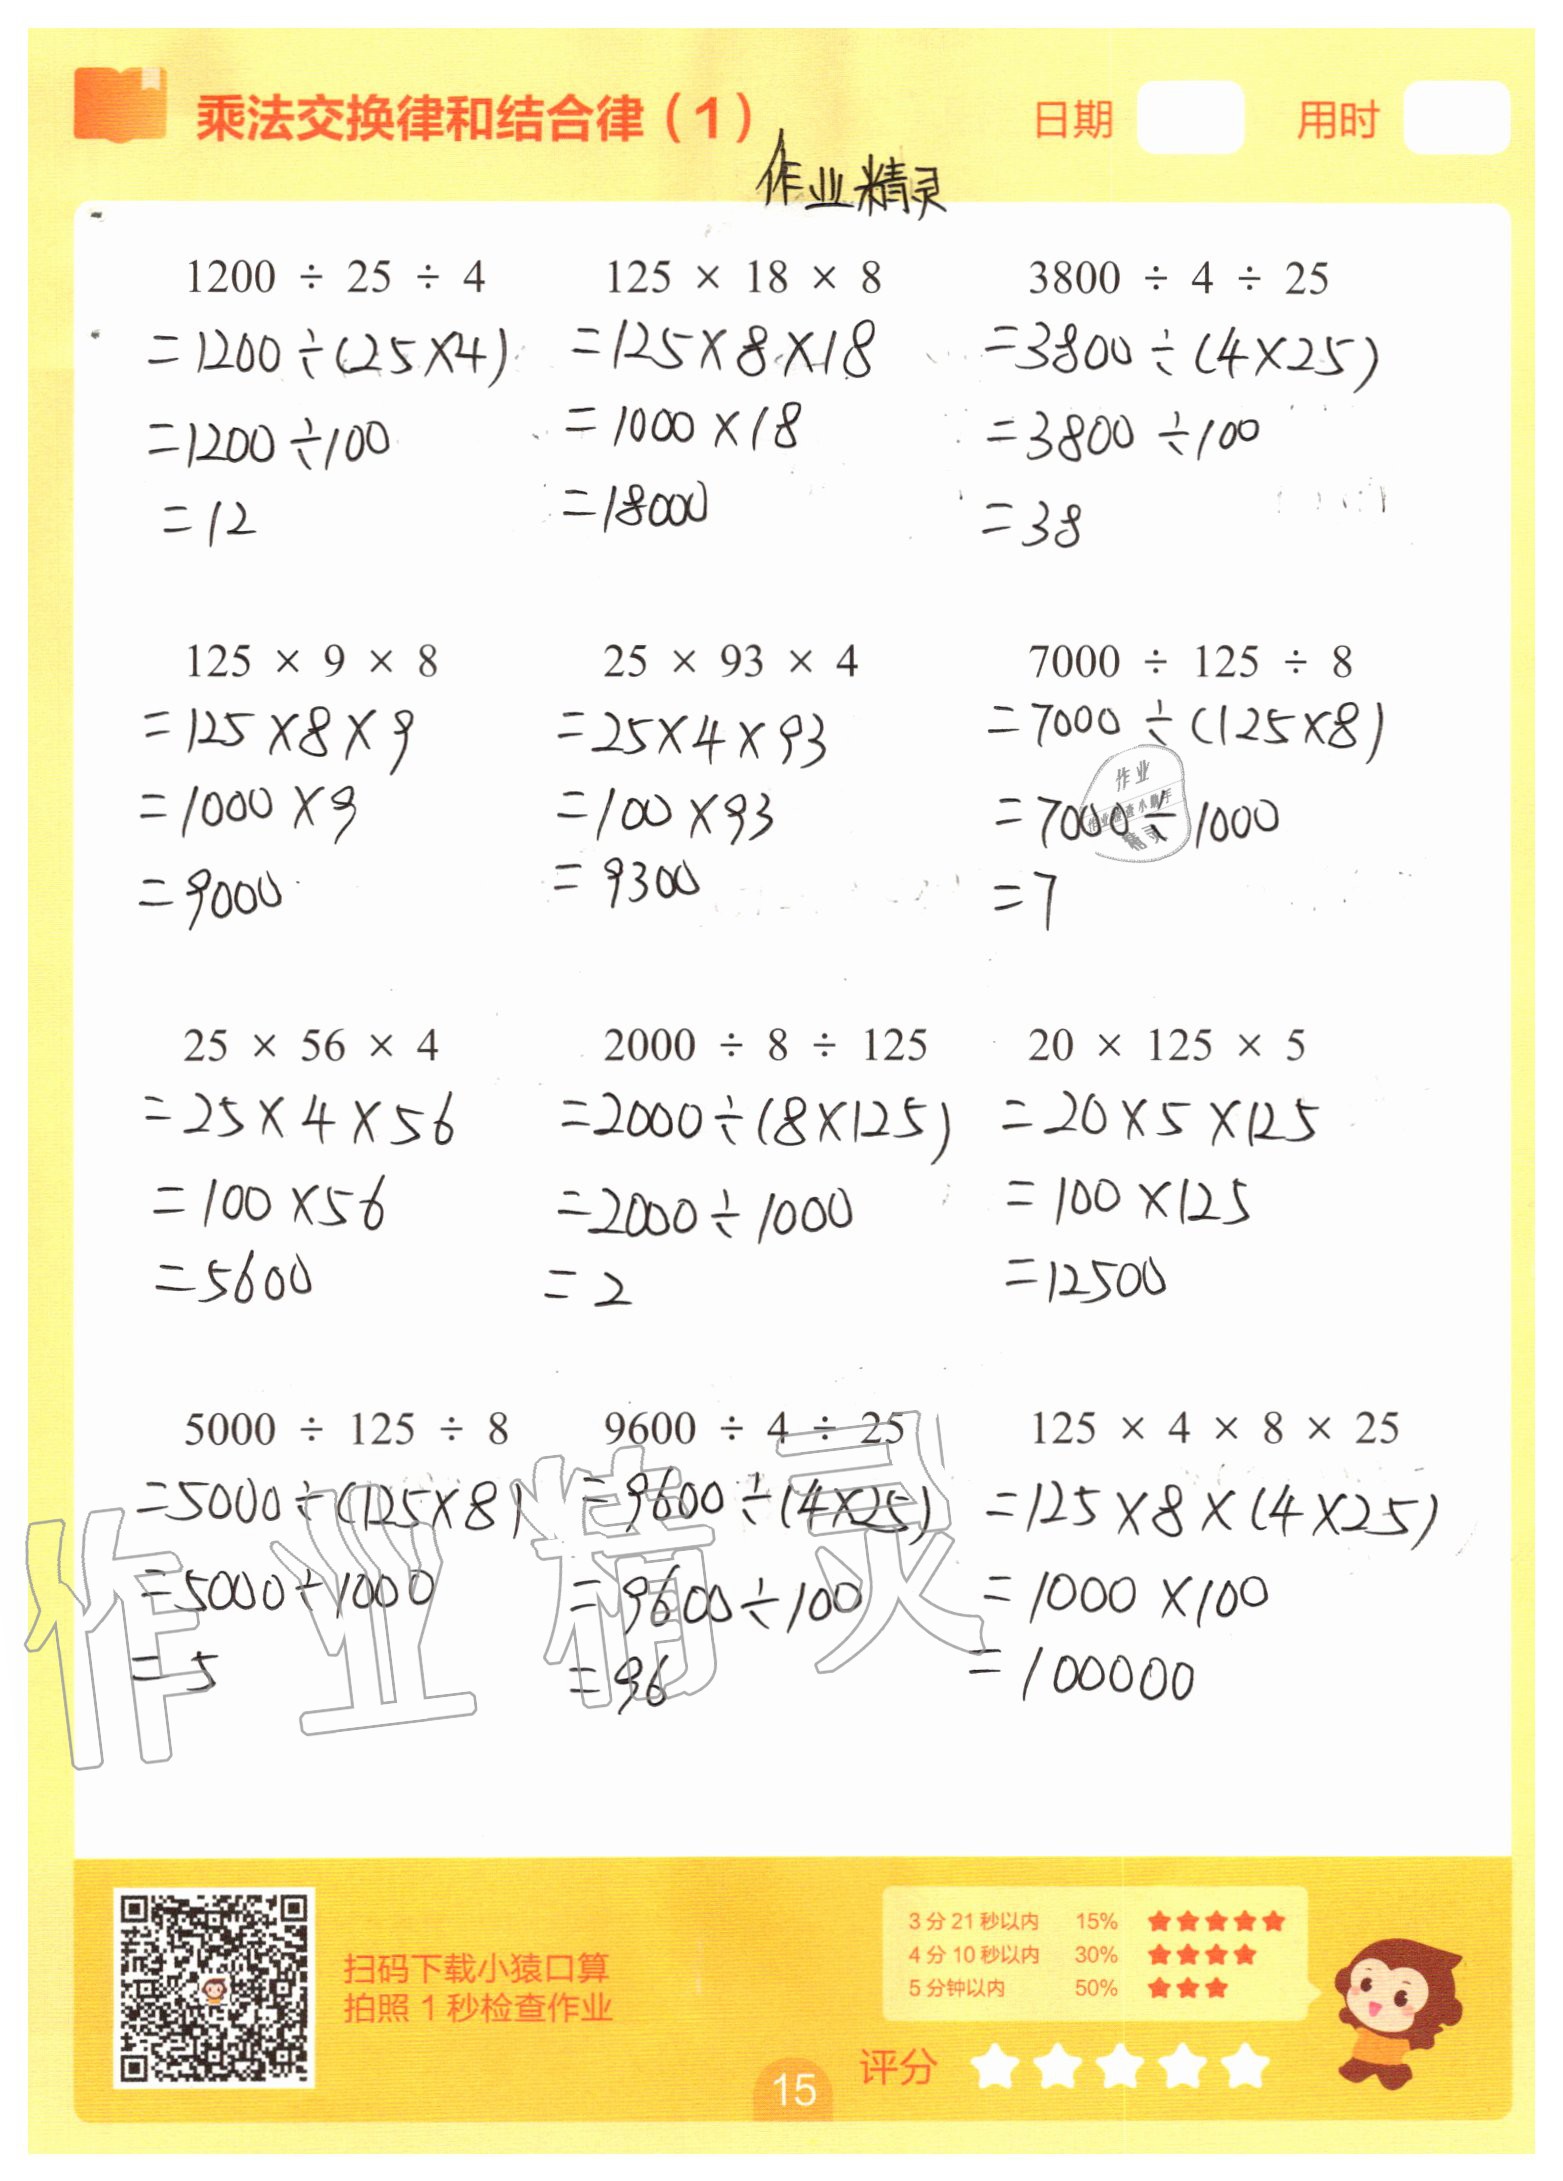 乘法交换律和结合律（1）
日期
用时
作业精灵
1200 ÷ 25 ÷ 4
=1200÷(25×4)
=1200÷100
=12
125 × 18 × 8
=125×8×18
=1000×18
=18000
3800 ÷ 4 ÷ 25
=3800÷(4×25)
=3800÷100
=38
125 × 9 × 8
=125×8×9
=1000×9
=9000
25 × 93 × 4
=25×4×93
=100×93
=9300
7000 ÷ 125 ÷ 8
=7000÷(125×8)
=7000÷1000
=7
作业
作业检查小助手
精灵
25 × 56 × 4
=25×4×56
=100×56
=5600
2000 ÷ 8 ÷ 125
=2000÷(8×125)
=2000÷1000
=2
20 × 125 × 5
=20×5×125
=100×125
=12500
5000 ÷ 125 ÷ 8
=5000÷(125×8)
=5000÷1000
=5
9600 ÷ 4 ÷ 25
=9600÷(4×25)
=9600÷100
=96
125 × 4 × 8 × 25
=125×8×(4×25)
=1000×100
=100000
作业精灵
扫码下载小猿口算
拍照1秒检查作业
3分21秒以内 15%
4分10秒以内 30%
5分钟以内 50%
评分
15